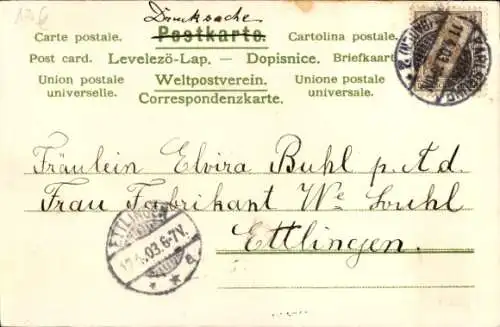 126
Drucksache
Carte postale. Postkarte. Cartolina postale.
Post card. Levelező-Lap. — Dopisnice. Briefkaart
Union postale universelle. Weltpostverein. Unione postale universale.
Correspondenzkarte.
Fräulein Elvira Buhl p. Ad.
Frau Fabrikant We Buhl
Ettlingen.
ETTLINGEN
17.4.03.6-7V.
a